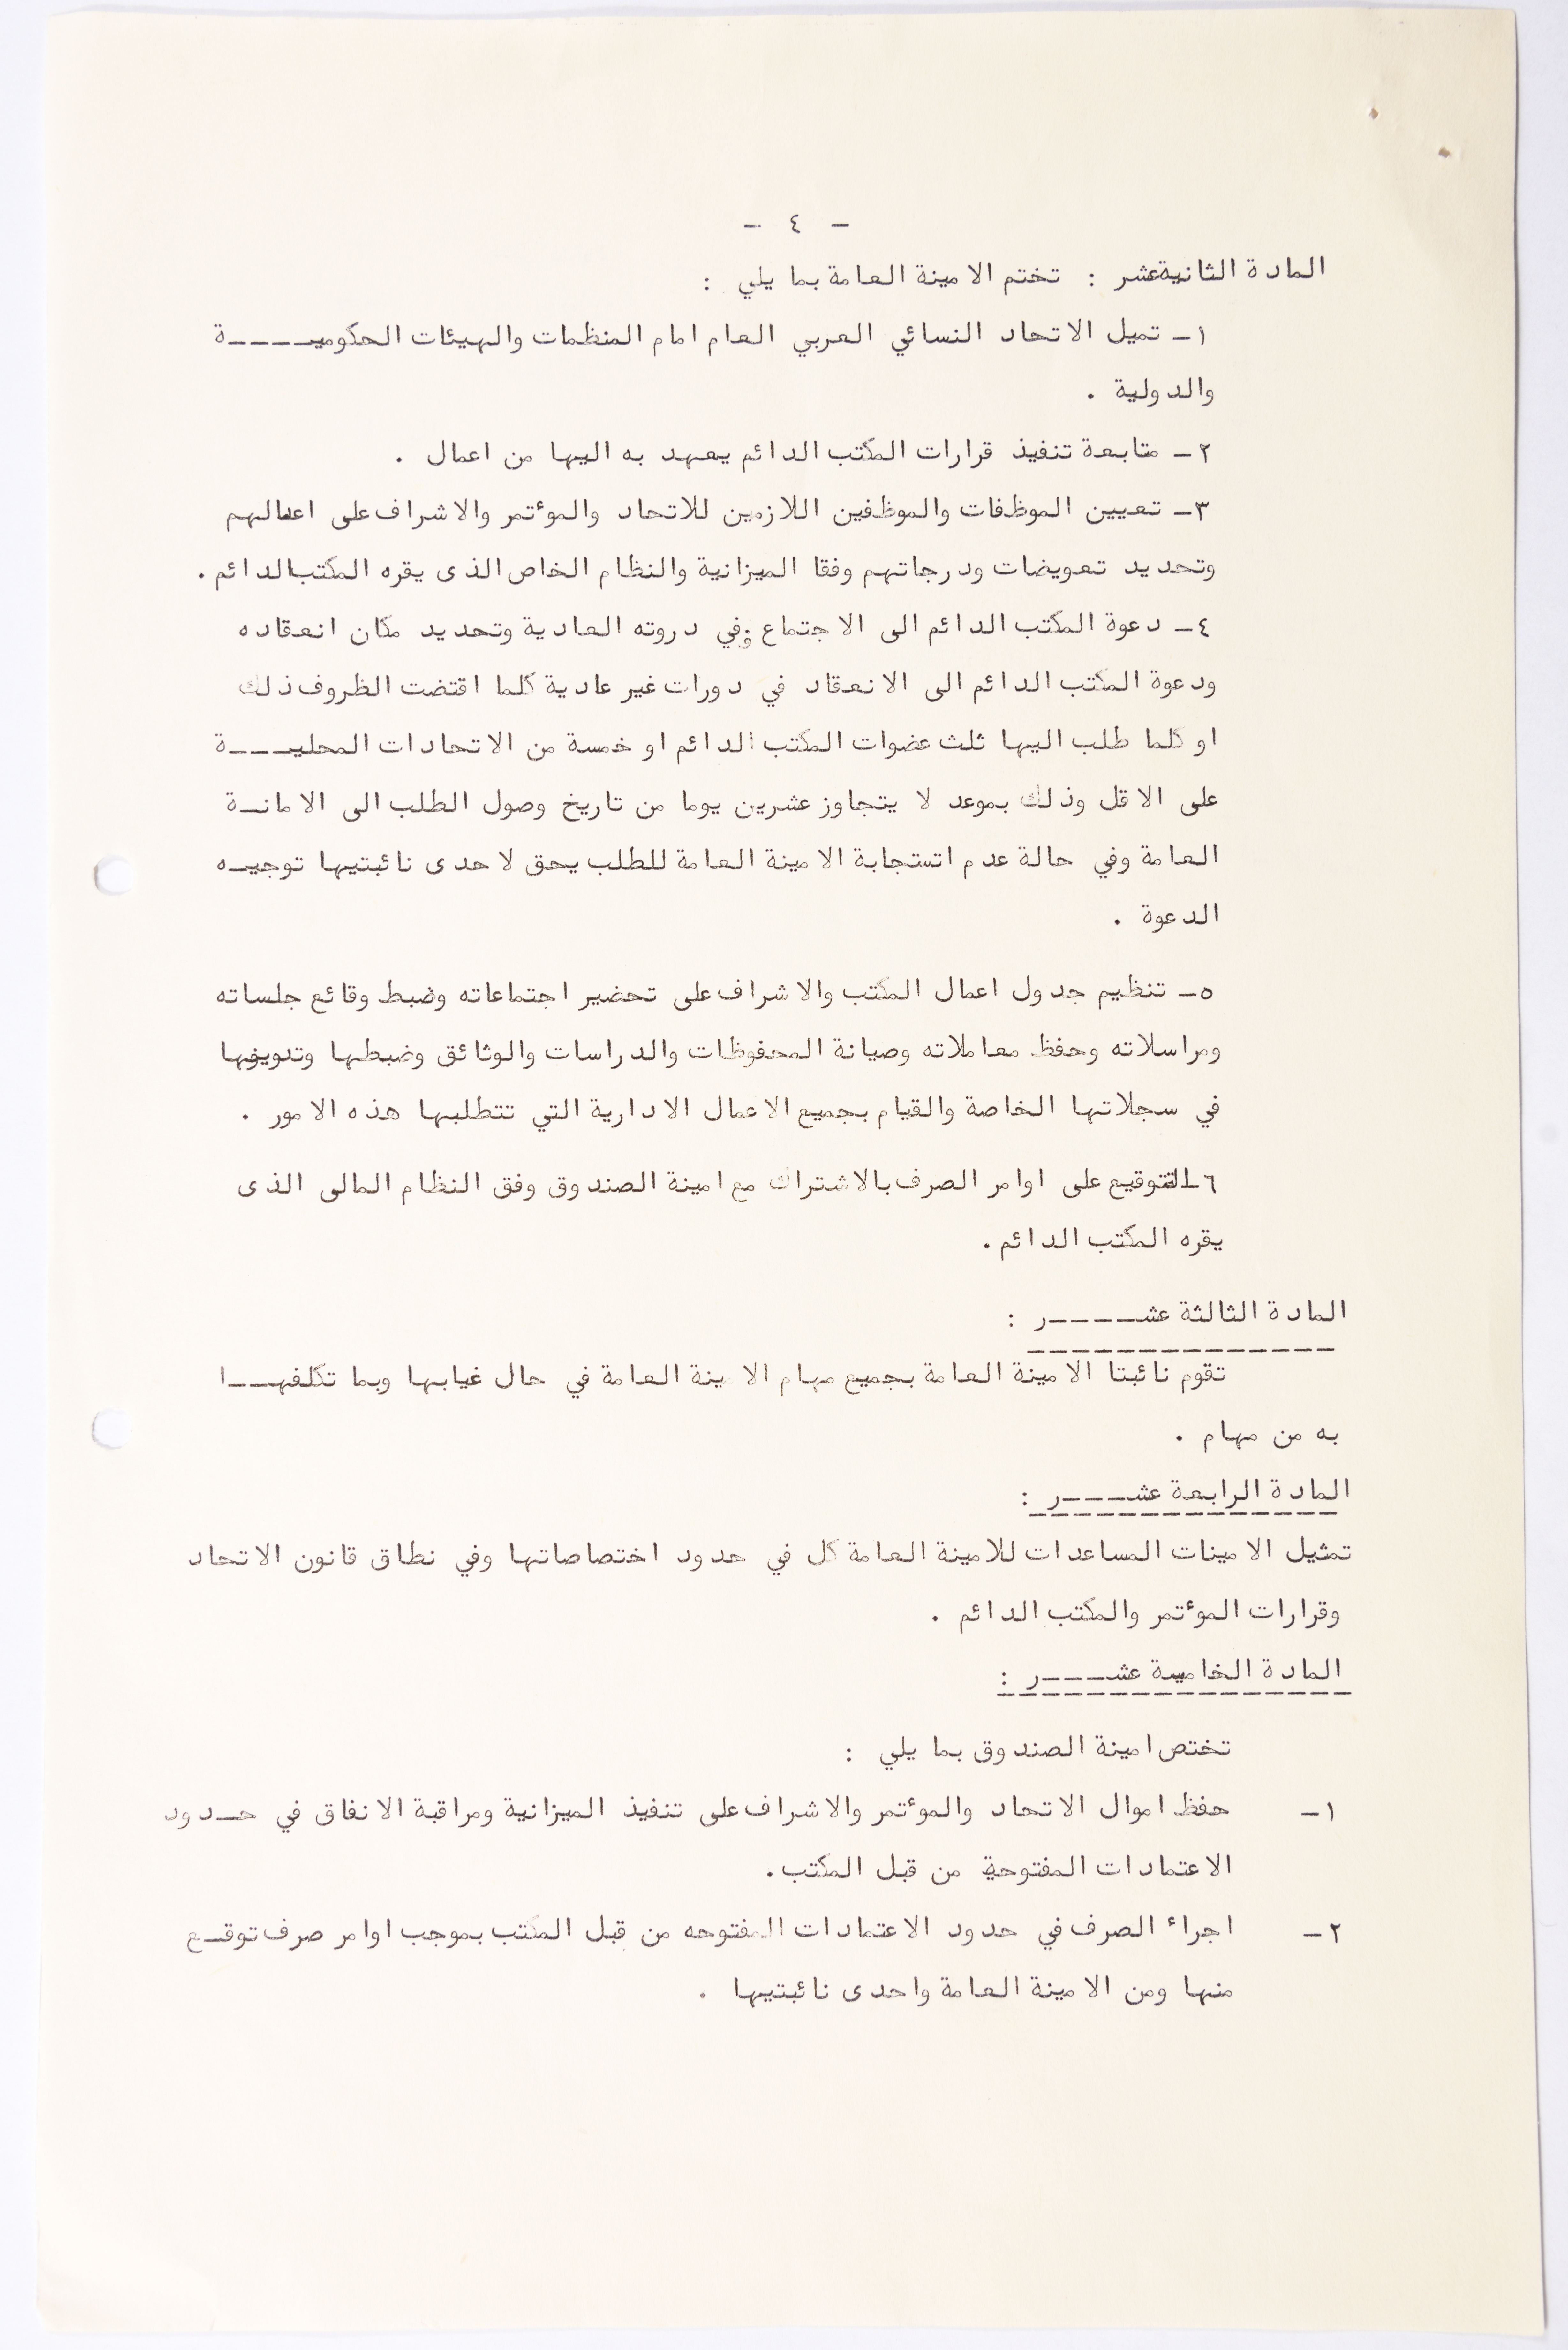 - ٤ -
المادة الثانيةعشر : تختم الامينة العامة بما يلي :
١- تميل الاتحاد النسائي العربي العام امام المنظمات والهيئات الحكوميــــة
والدولية .
٢- متابعة تنفيذ قرارات المكتب الدائم يعهد به اليها من اعمال .
٣- تعيين الموظفات والموظفين اللازمين للاتحاد والموٴتمر والاشراف على اعمالهم
وتحديد تعويضات ودرجاتهم وفقا الميزانية والنظام الخاص الذى يقره المكتب الدائم .
٤- دعوة المكتب الدائم الى الاجتماع في دروته العادية وتحديد مكان انعقاده
ودعوة المكتب الدائم الى الانعقاد في دورات غير عادية كلما اقتضت الظروف ذلك
او كلما طلب اليها ثلث عضوات المكتب الدائم او خمسة من الاتحادات المحليــــة
على الاقل وذلك بموعد لا يتجاوز عشرين يوما من تاريخ وصول الطلب الى الامانــة
العامة وفي حالة عدم اتستجابة الامينة العامة للطلب يحق لاحدى نائبتيها توجيــه
الدعوة .
٥- تنظيم جدول اعمال المكتب والاشراف على تحضير اجتماعاته وضبط وقائع جلساته
ومراسلاته وحفظ معاملاته وصيانة المحفوظات والدراسات والوثائق وضبطها
في سجلاتها الخاصة والقيام بجميع الاعمال الادارية التي تتطلبها هذه الامور .
٦- التوقيع على اوامر الصرف بالاشتراك مع امينة الصندوق وفق النظام المالى الذى
يقره المكتب الدائم .
المادة الثالثة عشــــــر :
تقوم نائبتا الامينة العامة بجميع مهام الامينة العامة في حال غيابها وبما تكلفهـــا
به من مهام .
المادة الرابعة عشـــــر :
تمثيل الامينات المساعدات للامينة العامة كل في حدود اختصاصاتها وفي نطاق قانون الاتحاد
وقرارات الموٴتمر والمكتب الدائم .
المادة الخامسة عشـــــر :
تختص امينة الصندوق بما يلي :
١- حفظ اموال الاتحاد والموٴتمر والاشراف على تنفيذ الميزانية ومراقبة الانفاق في حــدود
الاعتمادات المفتوحة من قبل المكتب .
٢- اجراء الصرف في حدود الاعتمادات المفتوحه من قبل المكتب بموجب اوامر صرف توقــع
منها ومن الامينة العامة واحدى نائبتيها .